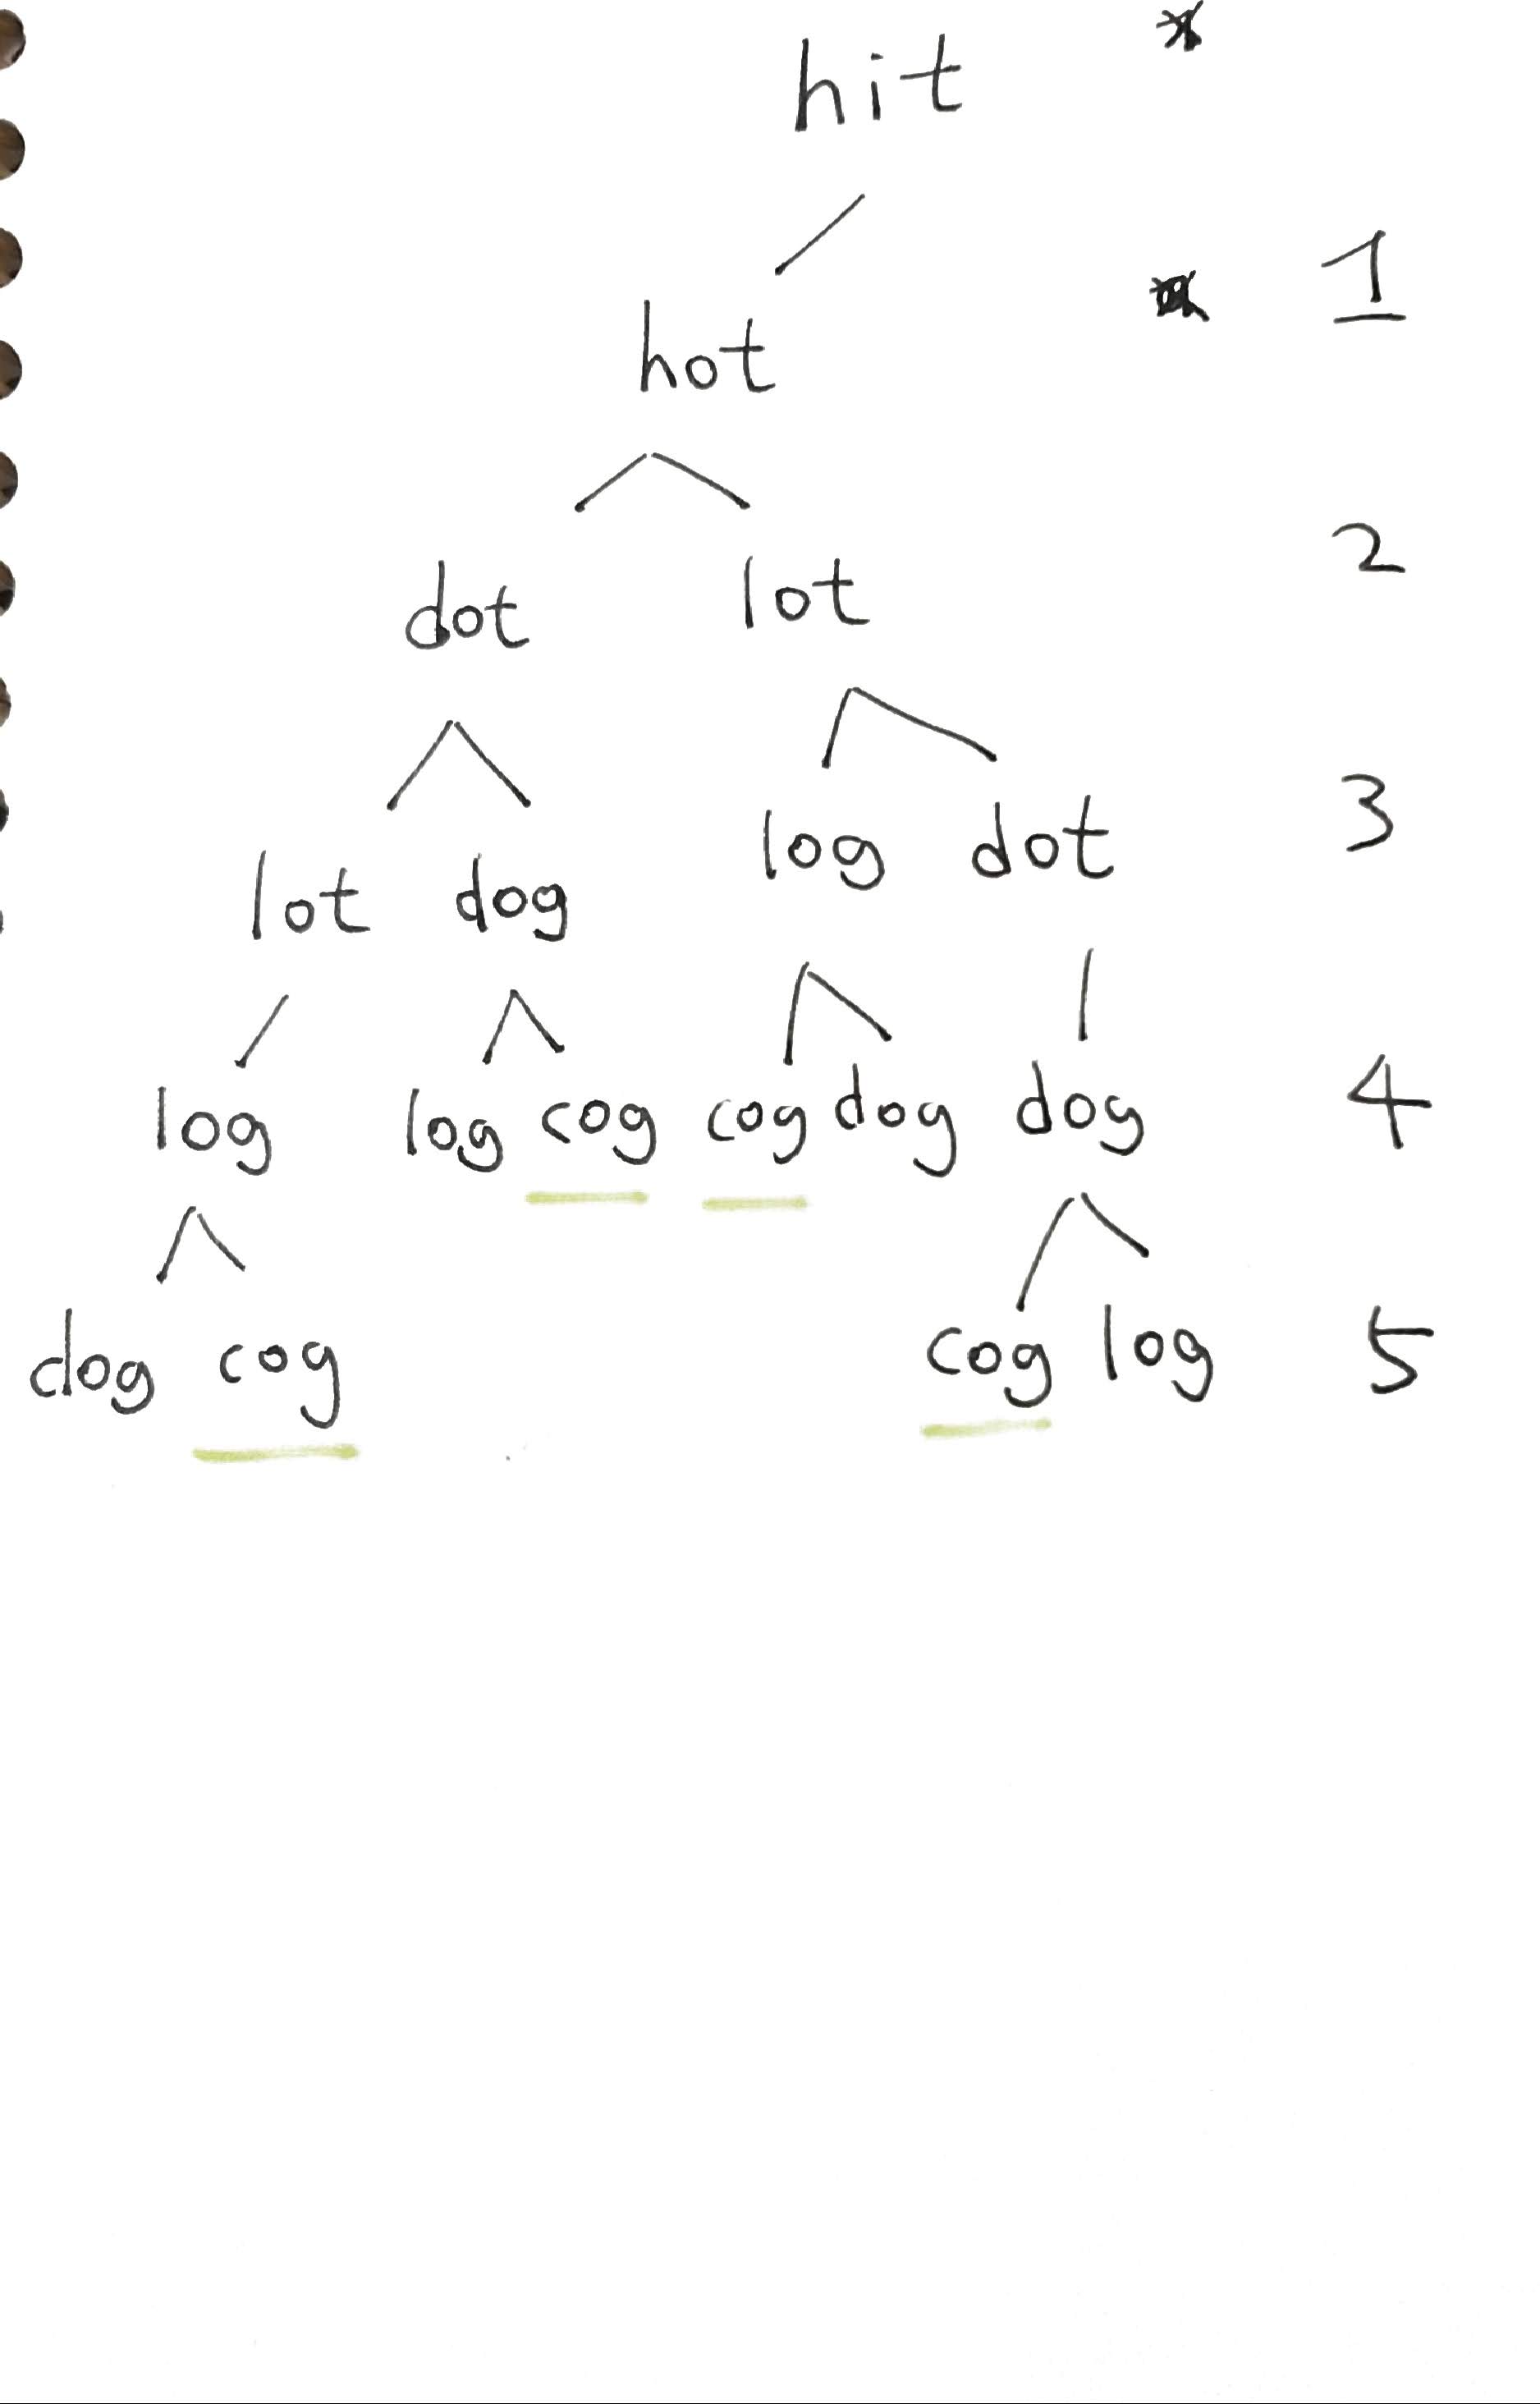 hit
hot 1
dot lot 2
lot dog log dot 3
log log cog cog dog dog 4
dog cog cog log 5